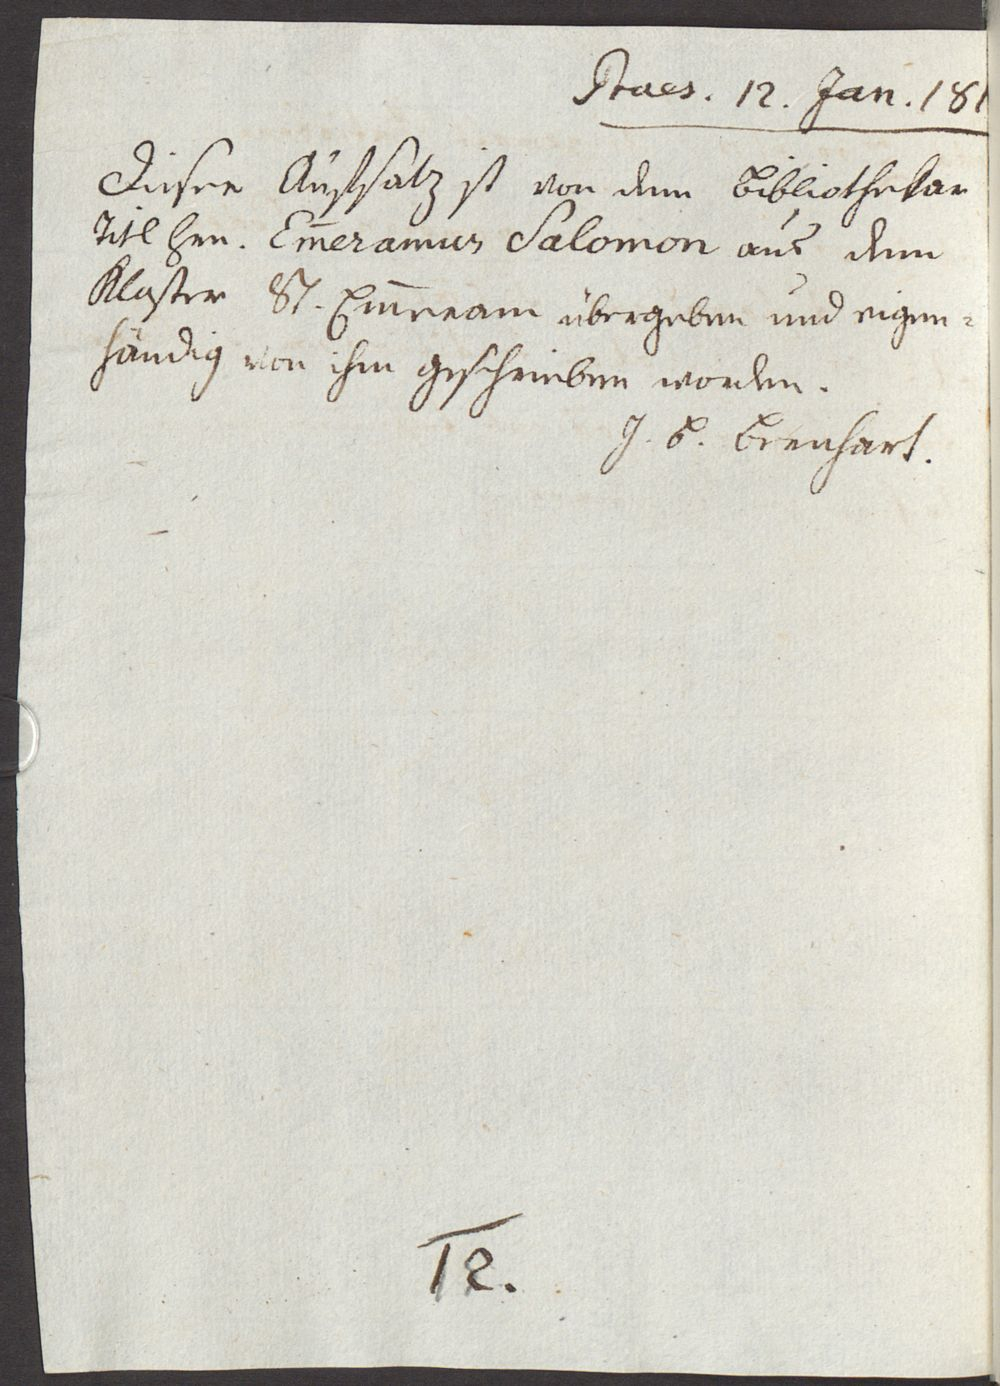 Praes. 12. Jan. 181
Dieser Aufsatz ist von dem Bibliothekar
Titl Hrn. Em̅eramus Salomon aus dem
Kloster St. Em̅eram übergeben und eigen=
händig von ihm geschrieben worden.
J. B. Bernhart.
12.